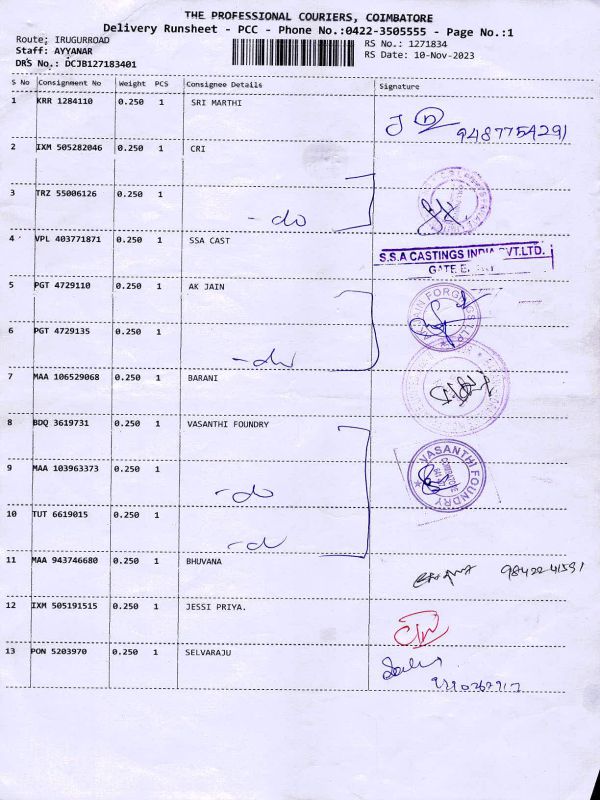 THE PROFESSIONAL COURIERS, COIMBATORE
Delivery Runsheet - PCC - Phone No.:0422-3505555 - Page No.:1
Route; IRUGURROAD
RS No.: 1271834
Staff: AYYANAR
RS Date: 10-Nov-2023
DRS No.: DCJB127183401
S No Consignment No Weight PCS Consignee Details Signature
1 KRR 1284110 0.250 1 SRI MARTHI
9487754291
2 IXM 505282046 0.250 1 CRI
3 TRZ 55006126 0.250 1
- do
4 VPL 403771871 0.250 1 SSA CAST
S.S.A CASTINGS INDIA PVT.LTD.
GATE
5 PGT 4729110 0.250 1 AK JAIN
6 PGT 4729135 0.250 1
- do
7 MAA 106529068 0.250 1 BARANI
8 BDQ 3619731 0.250 1 VASANTHI FOUNDRY
VASANTHI FOUNDRY
9 MAA 103963373 0.250 1
- do
10 TUT 6619015 0.250 1
- d
11 MAA 943746680 0.250 1 BHUVANA
12 IXM 505191515 0.250 1 JESSI PRIYA.
13 PON 5203970 0.250 1 SELVARAJU